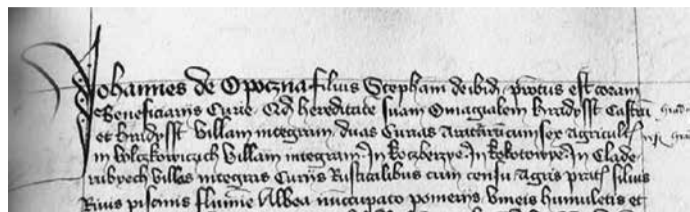 Johannes de Opoczna filius Stephani de ibid. protus est coram
Beneficiariis Curie Qd hereditate suam Omagialem Hradysst Castru
et Hradysst Villam integram duas Curias Araturarum sex Agricult
in Wlczkowiczych Villam integram In In In Clade
rubyech Villas integras Curiis Rusticalibus cum censu Agris pratis siluis
Riuis piscinis flumine Albea nuccupato pomeriis humuletis et